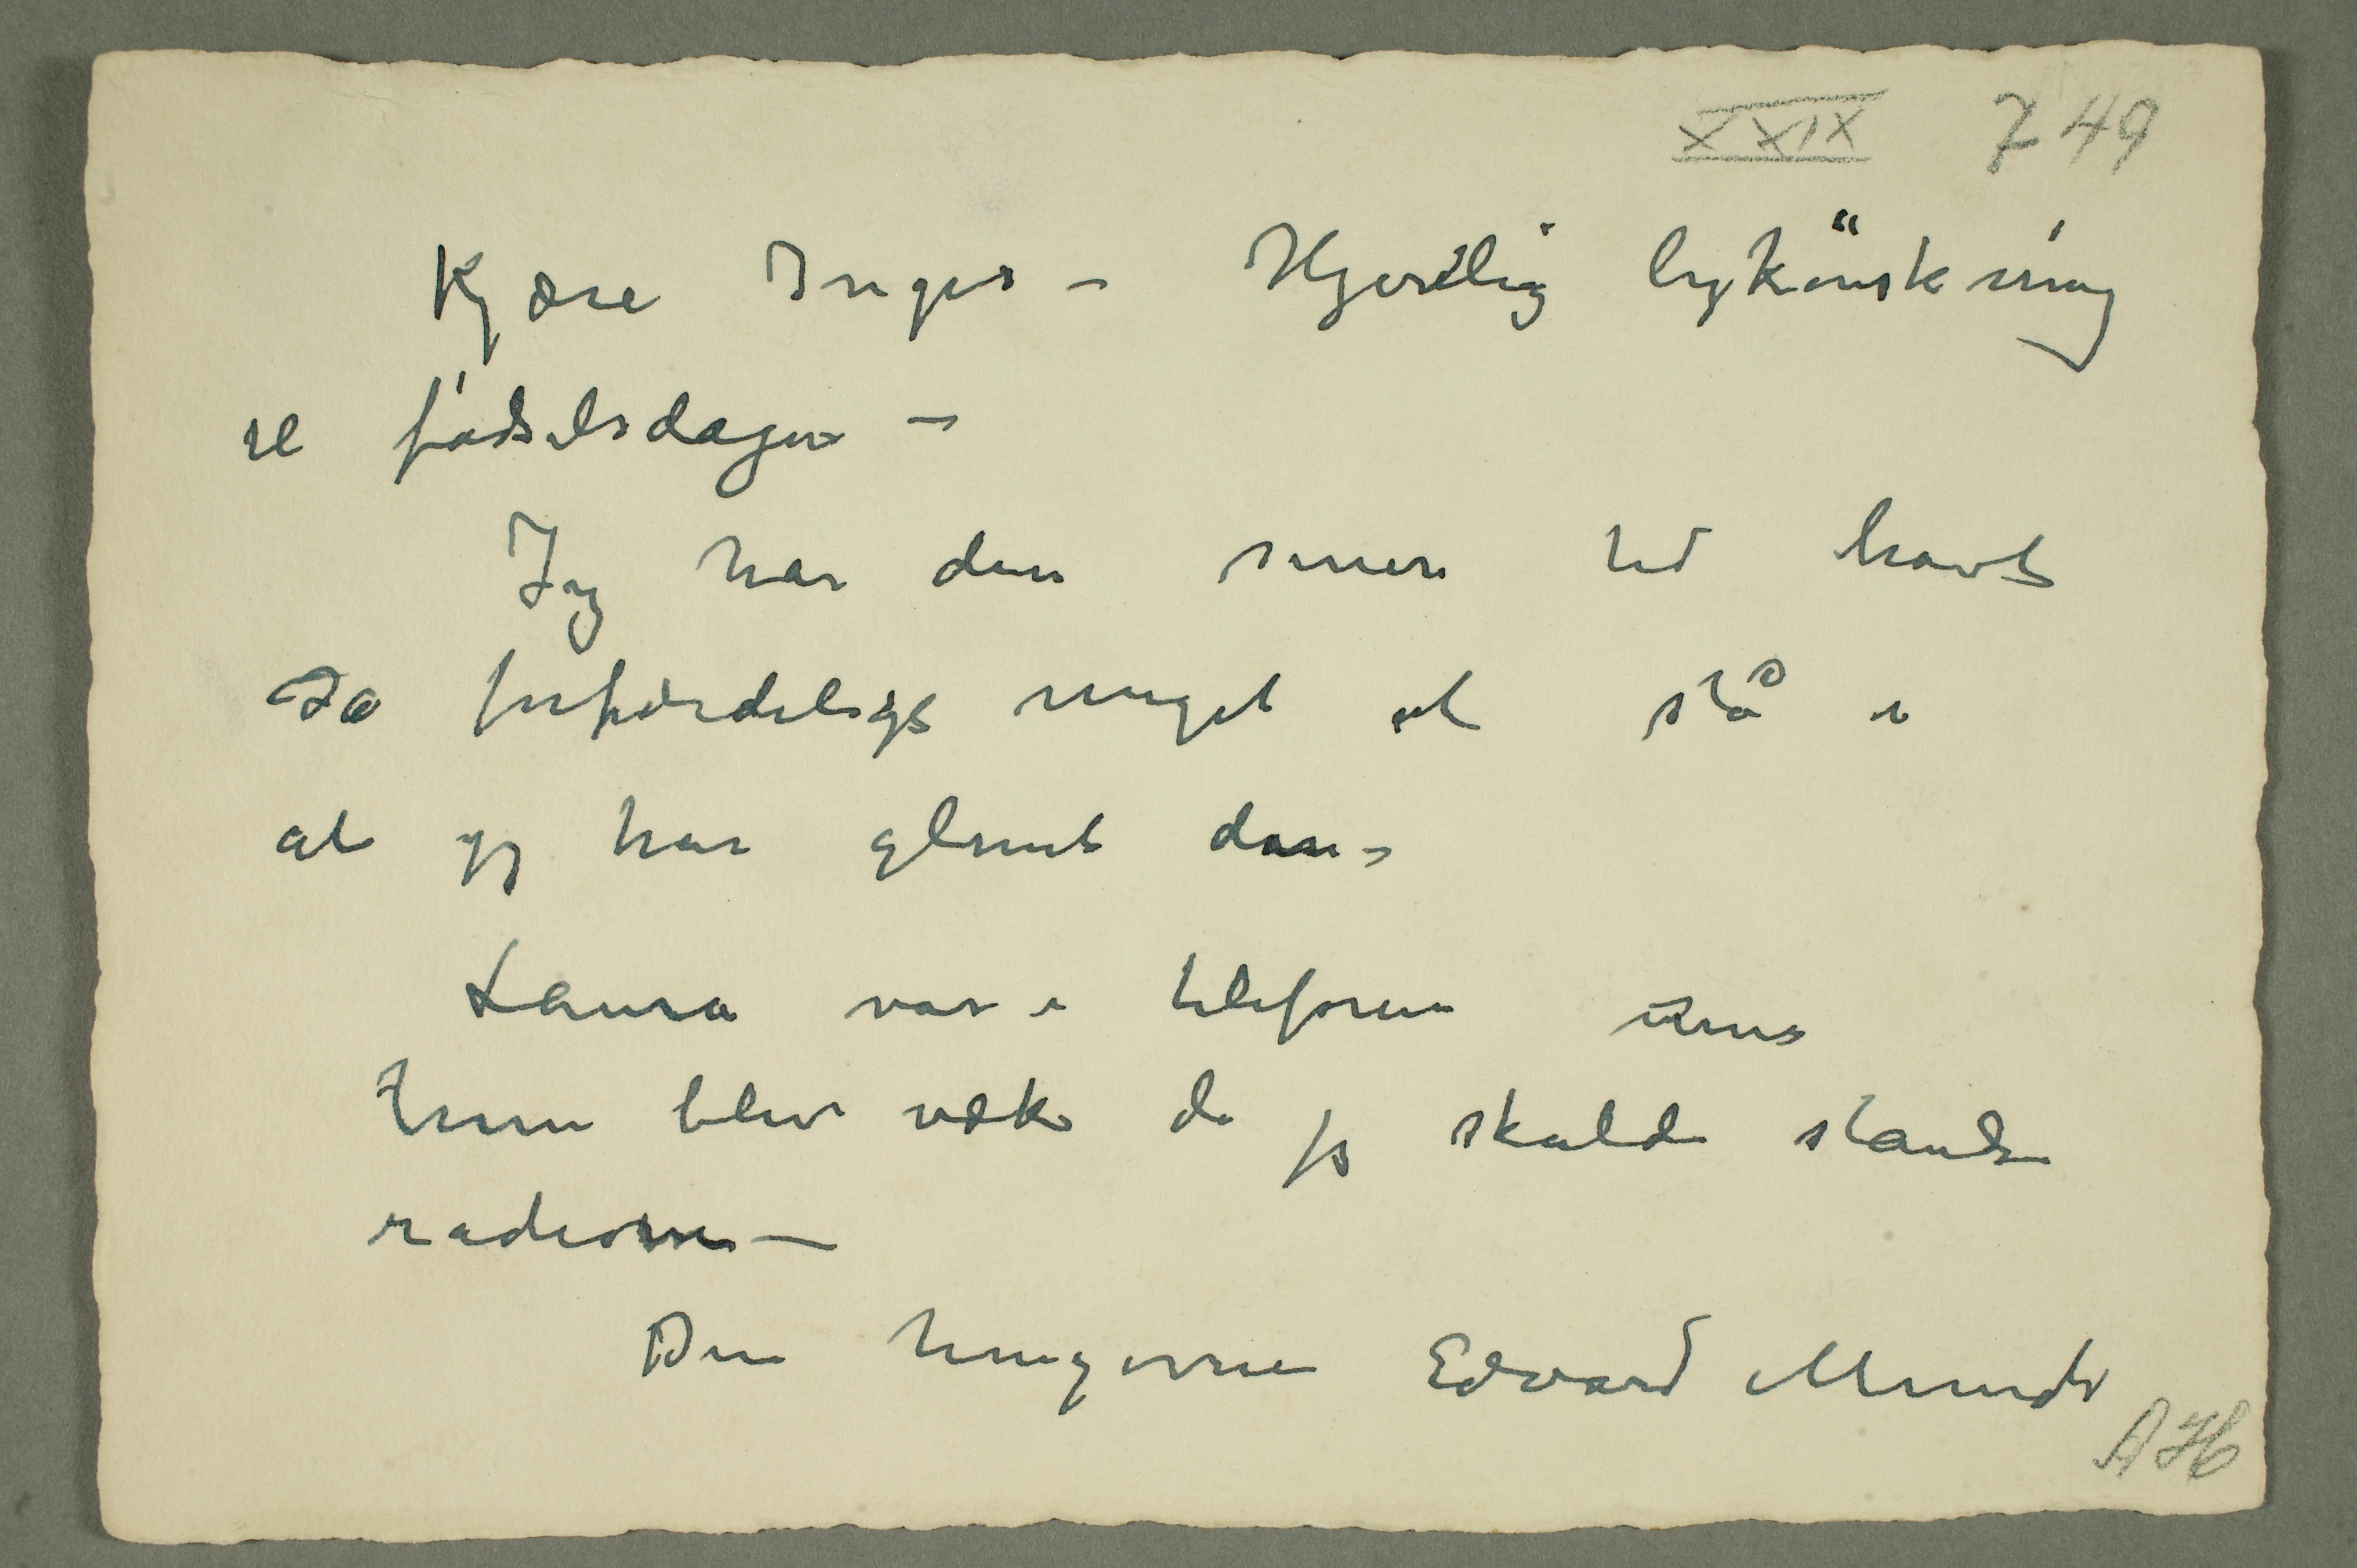 XXIX 749
Kjære Inger – Hjertelig lykönskning
til fødselsdagen –
Jeg har den senere tid havt
så forfærdeligt meget at stå i
at jeg har glemt den –
Laura var i telefonen
hun blev væk da jeg skulde standse
radioen –
Din hengivne Edvard Munch
AH